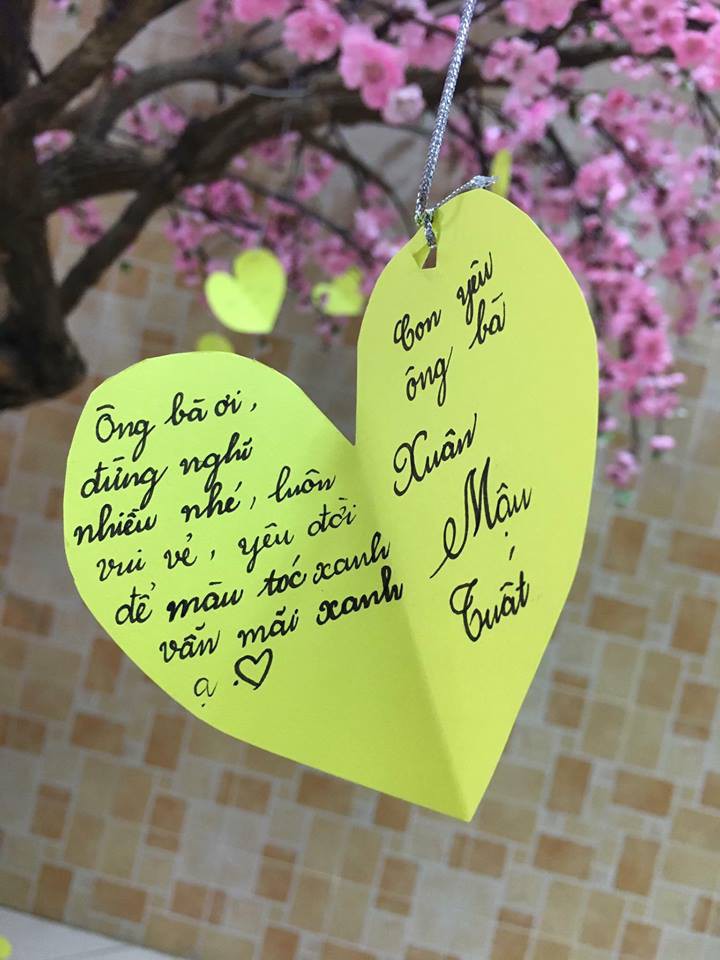 Ông bà ơi,
đừng nghĩ
nhiều nhé, luôn
vui vẻ, yêu đời
để màu tóc xanh
vẫn mãi xanh
ạ.
Con yêu
ông bà
Xuân
Mậu
Tuất